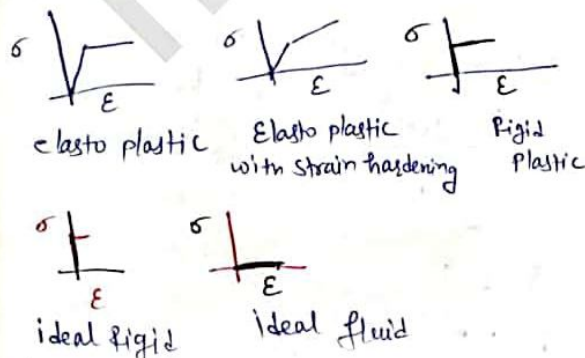 σ
ε
elasto plastic
σ
ε
Elasto plastic
with strain hardening
σ
ε
Rigid
Plastic
σ
ε
ideal Rigid
σ
ε
ideal fluid